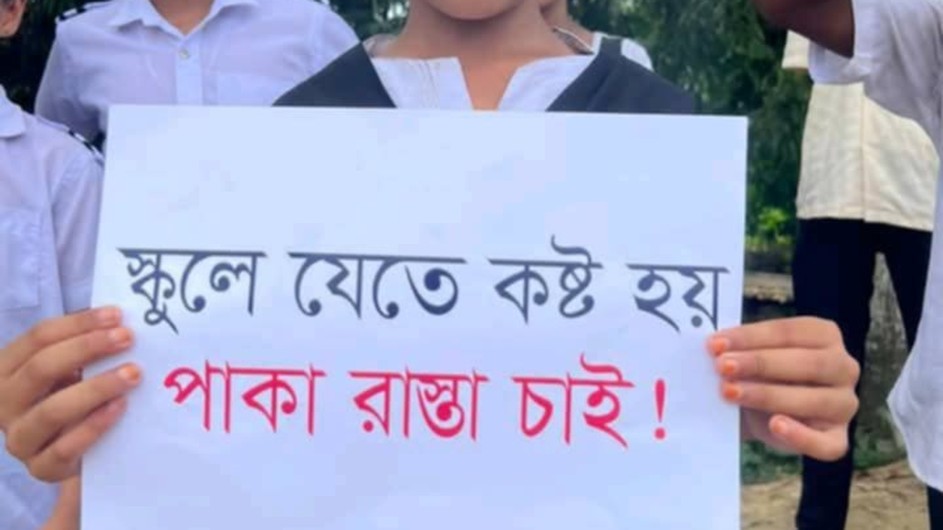 স্কুলে যেতে কষ্ট হয়
পাকা রাস্তা চাই!